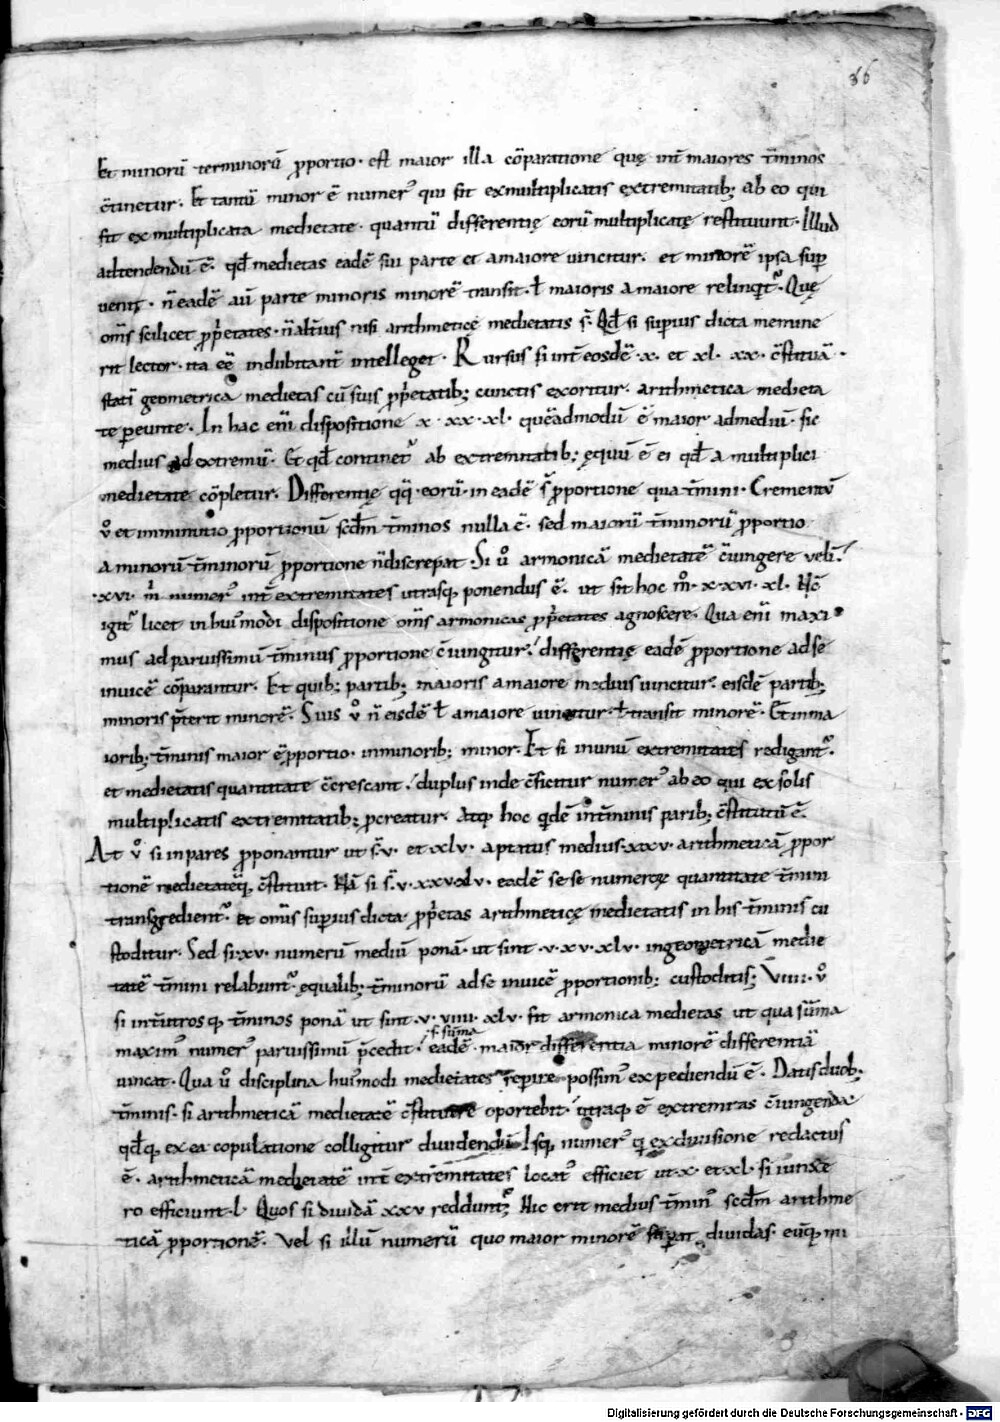 86
Et minorū terminorū ꝓportio · est maior illa cōparatione quę int̄ maiores t̄minos
c̄tinetur · Et tantū minor ē numer᷒ qui fit ex multiplicatis extremitatib; ab eo qui
fit ex multiplicata medietate · quantū differentię eorū multiplicatę restituunt · Illud
adtendendū ē · qđ medietas eadē sui parte et a maiore vincitur · et minorē ipsa suꝑ
venit · n̄ eadē aū parte minoris minorē transit · ł maioris a maiore relinqt᷒ · Quę
om̄s scilicet ꝓp̄etates · n̄ alt̄ius nisi arithmeticę medietatis s̄ · Qđ si suꝑius dicta memine
rit lector · ita eē indubitant̄ intelleget · Rursus si int̄ eosdē · x · et xl · xx · c̄stituā ·
statī geometrica medietas cū suis ꝓp̄etatib; cunctis exoritur · arithmetica medieta
te ꝑeunte · In hac enī dispositione x · xx · xl · queādmodū ē maior ad mediū · sic
medius ad extremū · Et qđ continet᷒ ab extremitatib; ęquū ē ei qđ a multiplici
medietate cōpletur · Differentię qq̄ · eorū in eadē s̄ ꝓportione qua t̄mini · Crementū
v̊ et imminutio ꝓportionū scđm t̄minos nulla ē · sed maiorū t̄minorū ꝓportio
a minorū t̄minorū ꝓportione n̄ discrepat · Si v̊ armonicā medietatē c̄iungere velī
· xvi · m̄ numer᷒ int̄ extremitates utrasq; ponendus ē · ut sit hoc m̊ · x · xvi · xl · Nc̄
igit᷒ licet in hui᷒modi dispositione om̄s armonicas ꝓp̄etates agnoscere · Qua enī maxi
mus ad parvissimū t̄minus ꝓportione c̄iungitur · differentię eadē ꝓportione ad se
invicē cōparantur · Et quib; partib; maioris a maiore medius vincitur · eisdē partib;
minoris p̄terit minorē · Suis v̊ n̄ eisdē ł a maiore vincitur · ł transit minorē · Et in ma
iorib; t̄minis maior ē ꝓportio · in minorib; minor · Et si in unū extremitates redigant᷒ ·
et medietatis quantitate c̄crescant · duplus inde c̄ficitur numer᷒ ab eo qui ex solis
multiplicatis extremitatib; ꝓcreatur · Atq; hoc qdē in t̄minis parib; c̄stitutū ē ·
At v̊ si inpares ꝓponantur ut s̄ · v · et xlv · aptatus medius · xxv · arithmeticā ꝓpor
tionē medietatēq; c̄stituit · Nā si s̄ · v · xxv · xlv · eadē se se numeroꝝ quantitate t̄mini
transgredient᷒ · et om̄is suꝑius dicta · ꝓp̄etas arithmeticę medietatis in his t̄minis cu
stoditur · Sed si · xv · numerū mediū ponā · ut sint · v · xv · xlv · in geometricā medie
tatē t̄mini relabunt᷒ · ęqualib; t̄minorū ad se invicē ꝓportionib; custoditis; VIIII · v̊
si int̄ utrosq; t̄minos ponā ut sint · v · viiii · xlv · fit armonica medietas ut qua sūma
s · sūma
maxim᷒ numer᷒ parvissimū p̄cedit · eadē · maior differentia minorē differentiā
vincat · Qua v̊ disciplina hui᷒modi medietates reꝑire possim᷒ expediendū ē · Datis duob;
t̄minis · si arithmeticā medietatē c̄stituere oportebit · utraq; ē extremitas c̄iungenda
qđq; ex ea copulatione colligitur dividendū Isq; numer᷒ q̇ ex divisione redactus
ē · arithmeticā medietatē int̄ extremitates locat᷒ efficiet ut · x · et · xl · si iunxe
ro efficiunt · l · Quos si dividā xxv reddunt᷒ Hic erit medius t̄min᷒ scđm arithme
ticā ꝓportionē · Vel si illū numerū quo maior minorē suꝑat dividas · eūq; mi
Digitalisierung gefördert durch die Deutsche Forschungsgemeinschaft - DFG